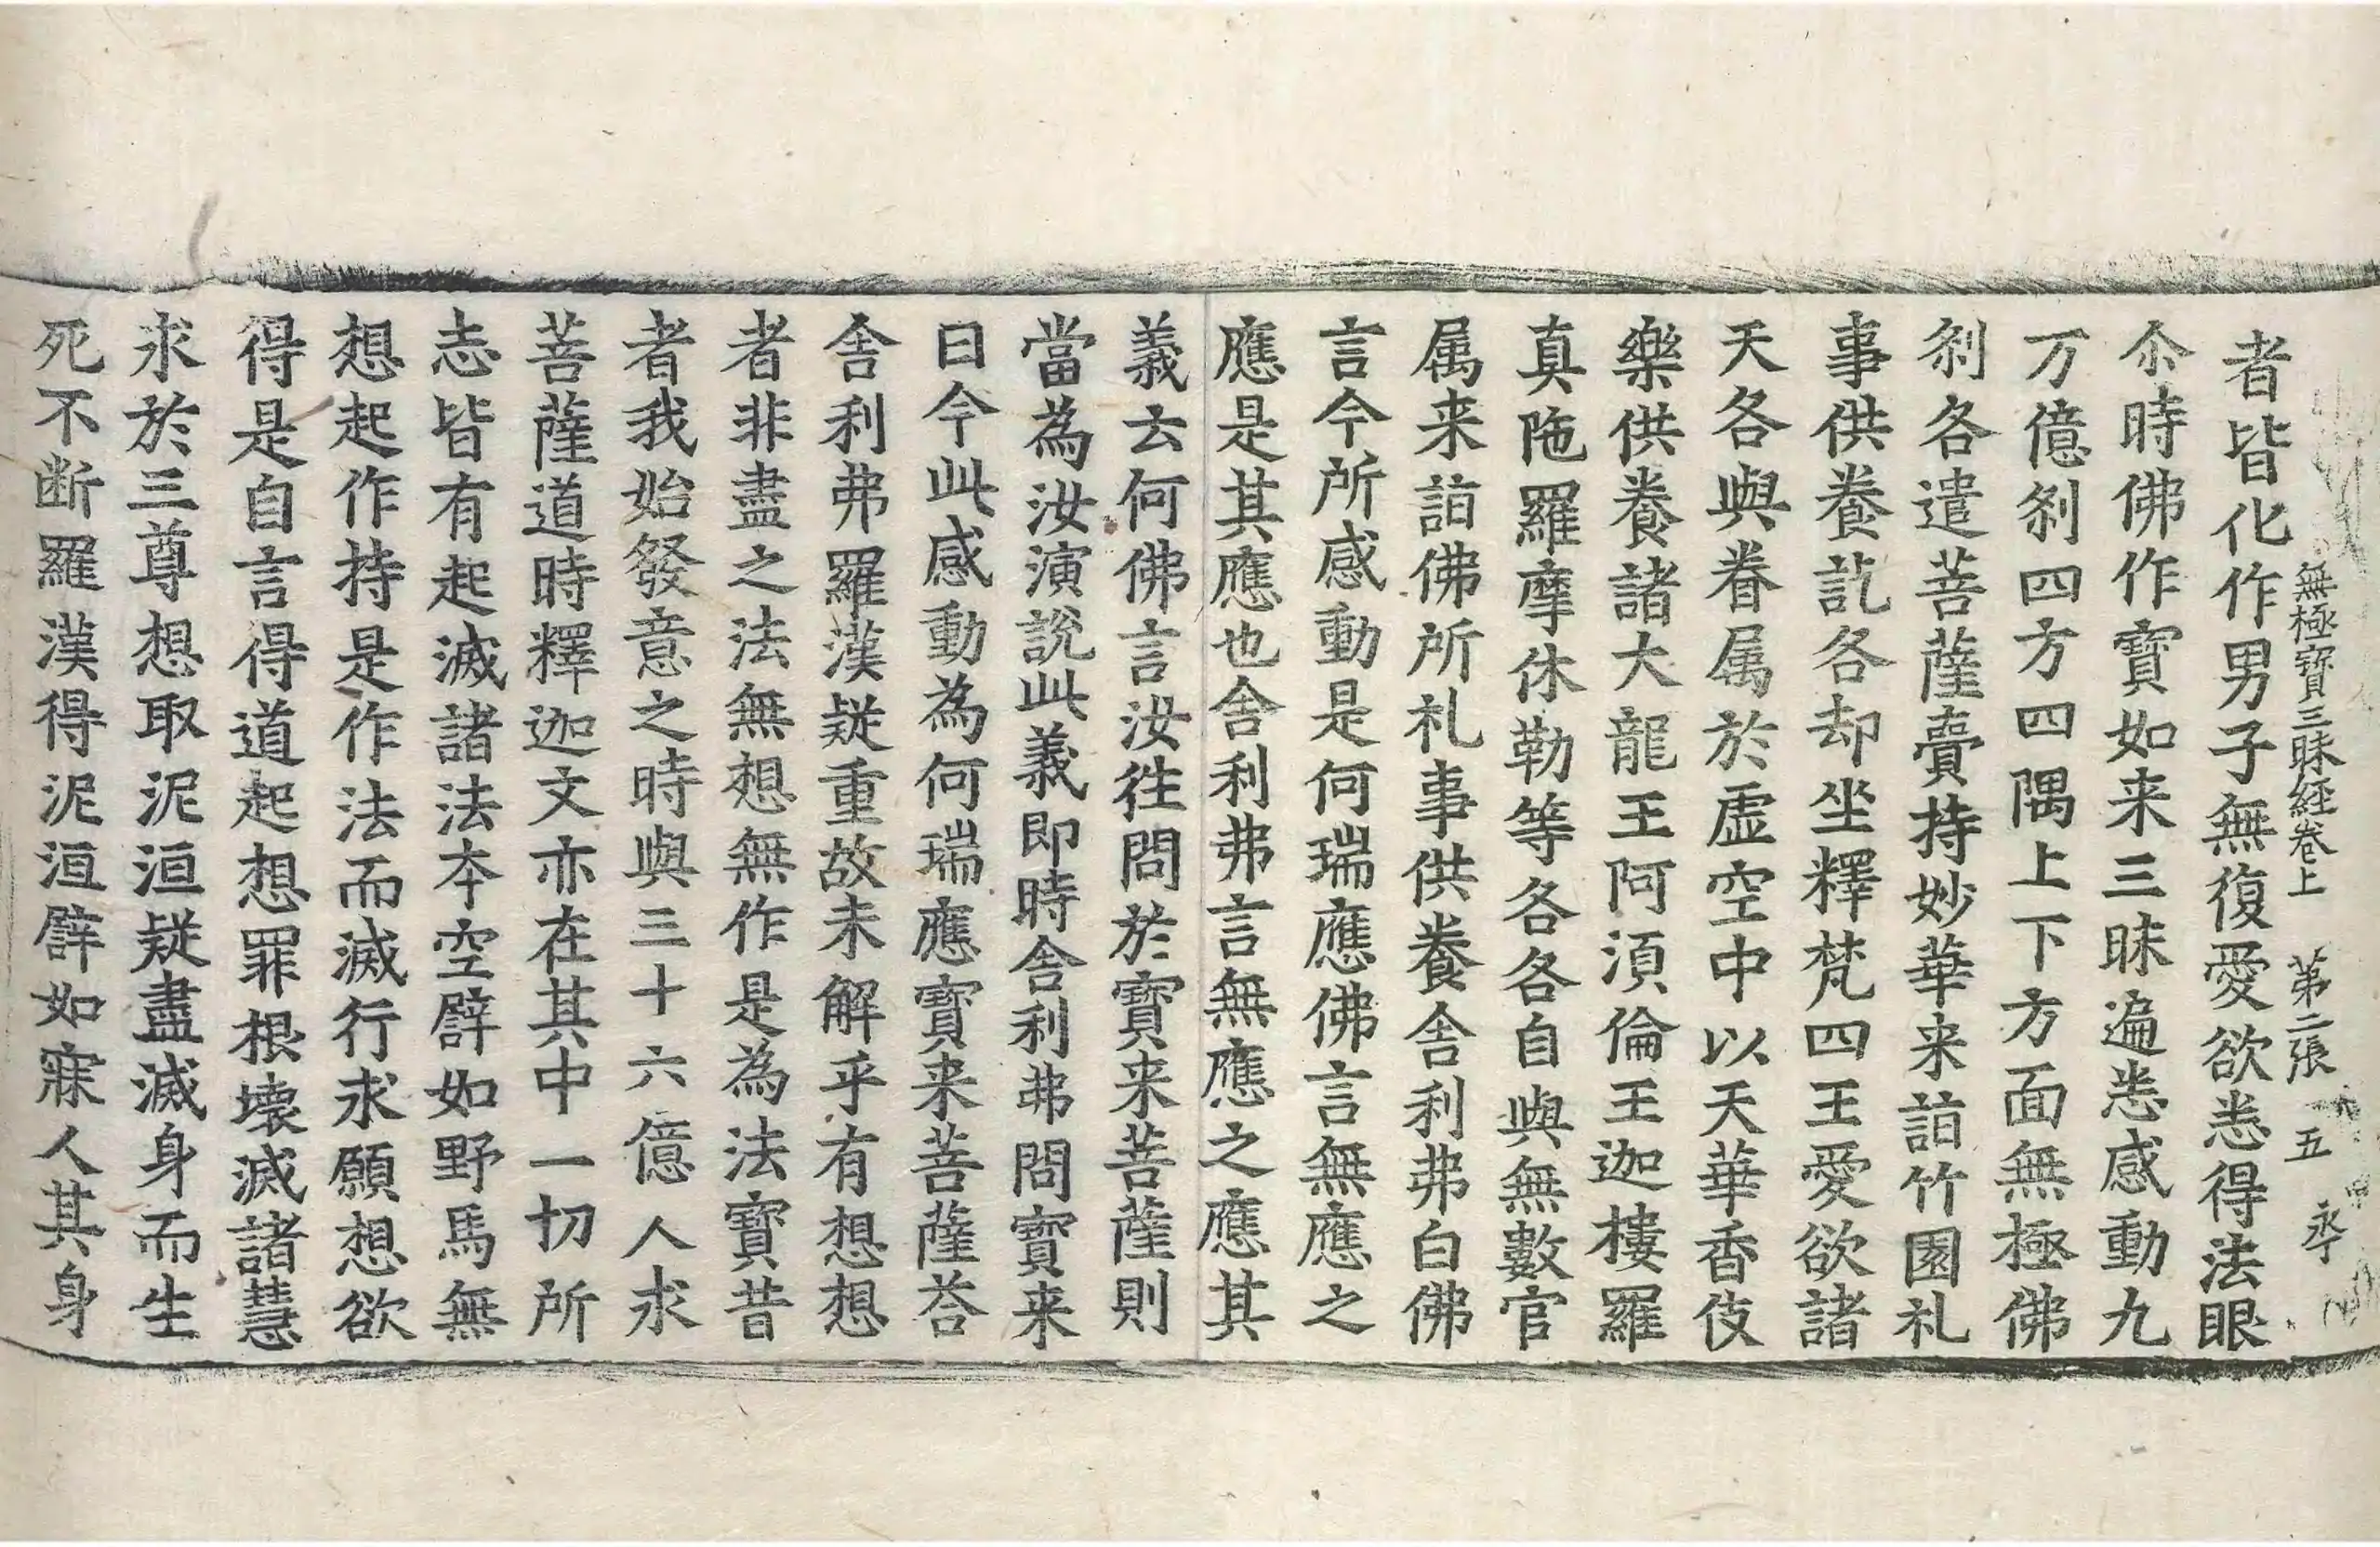 無極寶三昧経卷上　第二張　五　永
者皆化作男子無復愛欲悉得法眼
尒時佛作寶如来三昧遍悉感動九
万億刹四方四隅上下方面無極佛
刹各遣菩薩賷持妙華来詣竹園礼
事供養訖各却坐釋梵四王愛欲諸
天各與眷属於虚空中以天華香伎
樂供養諸大龍王阿湏倫王迦樓羅
真陁羅摩休勒等各各自與無數官
属来詣佛所礼事供養舎利弗白佛
言今所感動是何瑞應佛言無應之
應是其應也舎利弗言無應之應其
義云何佛言汝往問於寳来菩薩則
當為汝演說此義即時舎利弗問寳来
曰今此感動為何瑞應寳来菩薩荅
舎利弗羅漢疑重故未解乎有想想
者非盡之法無想無作是為法寳昔
者我始發意之時與三十六億人求
菩薩道時釋迦文亦在其中一切所
志皆有起滅諸法本空譬如野馬無
想起作持是作法而滅行求願想欲
得是自言得道起想罪根壊滅諸慧
求於三尊想取泥洹疑盡滅身而生
死不断羅漢得泥洹譬如寐人其身